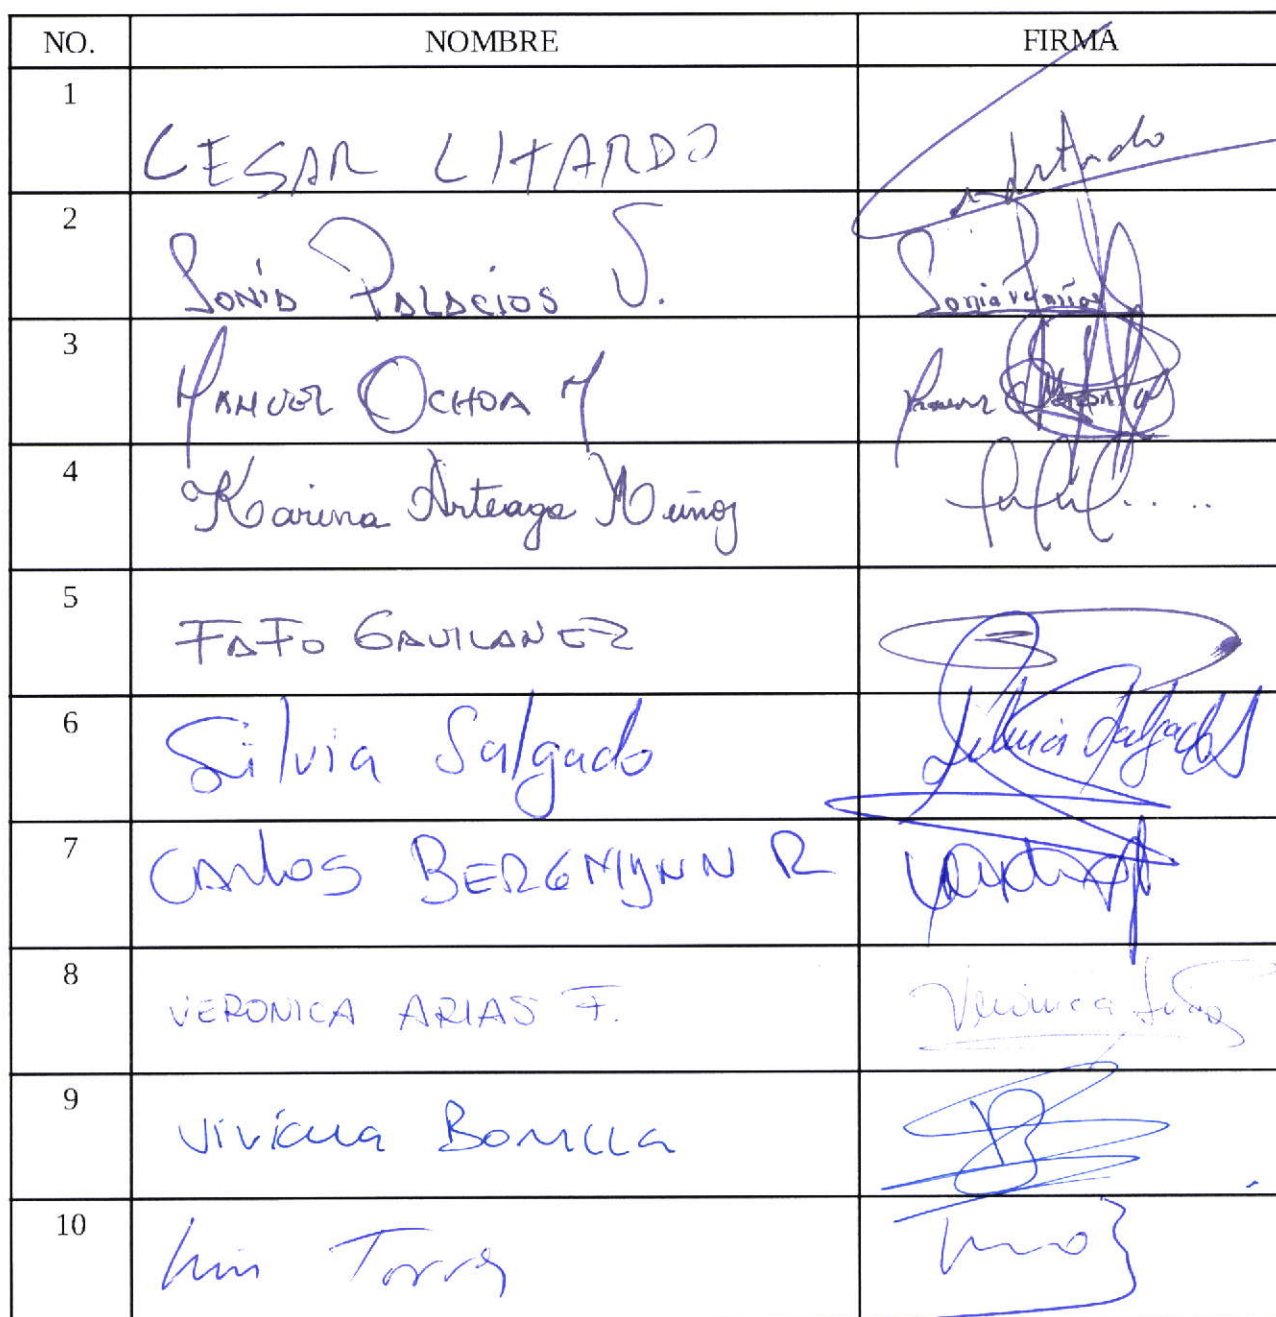 NO. NOMBRE FIRMA
1 CESAR LITARDO
2 Sonia Palacios V. Sonia
3 Manuel Ochoa M
4 Karina Arteaga Muñoz
5 FAFO GAVILANEZ
6 Silvia Salgado Silvia Salgado
7 Carlos BERGMANN R
8 VERONICA ARIAS F. Veronica Arias
9 Viviana Bonilla
10 Luis Torres